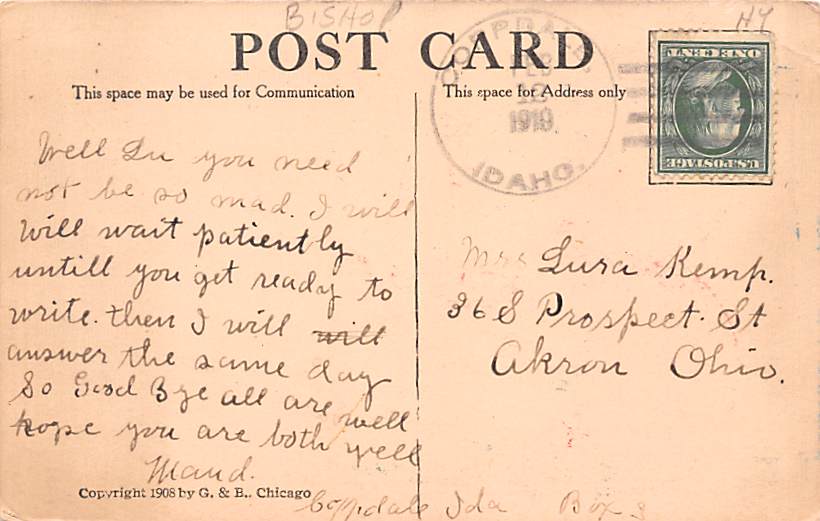 BISHOP
HY
POST CARD
This space may be used for Communication
This space for Address only
IDAHO.
FEB
1910
ONE CENT
U.S. POSTAGE
Well Lu you need
not be so mad. I will
will wait patiently
untill you get ready to
write. then I will will
answer the same day
So Good Bye all are well
hope you are both well
Maud.
Mrs Lura Kemp.
36 S Prospect. St
Akron Ohio.
Copyright 1908 by G. & B., Chicago
Ida Box 3